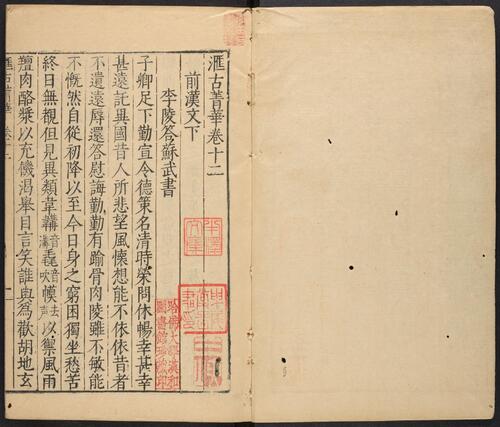 滙古菁華卷十二
前漢文下
李陵答蘇武書
子卿足下勤宣令德策名清時榮問休暢幸甚幸
甚遠託異國昔人所悲望風懷想能不依依昔者
不遺遠辱還答慰誨勤勤有踰骨肉陵雖不敏能
不慨然自從初降以至今日身之窮困獨坐愁苦
終日無覩但見異類韋韝音溝毳音吹幙去声以禦風雨
羶肉酪漿以充饑渴舉目言笑誰與為歡胡地玄
滙古菁華 卷十二
哈佛大學漢和
圖書館珍藏印